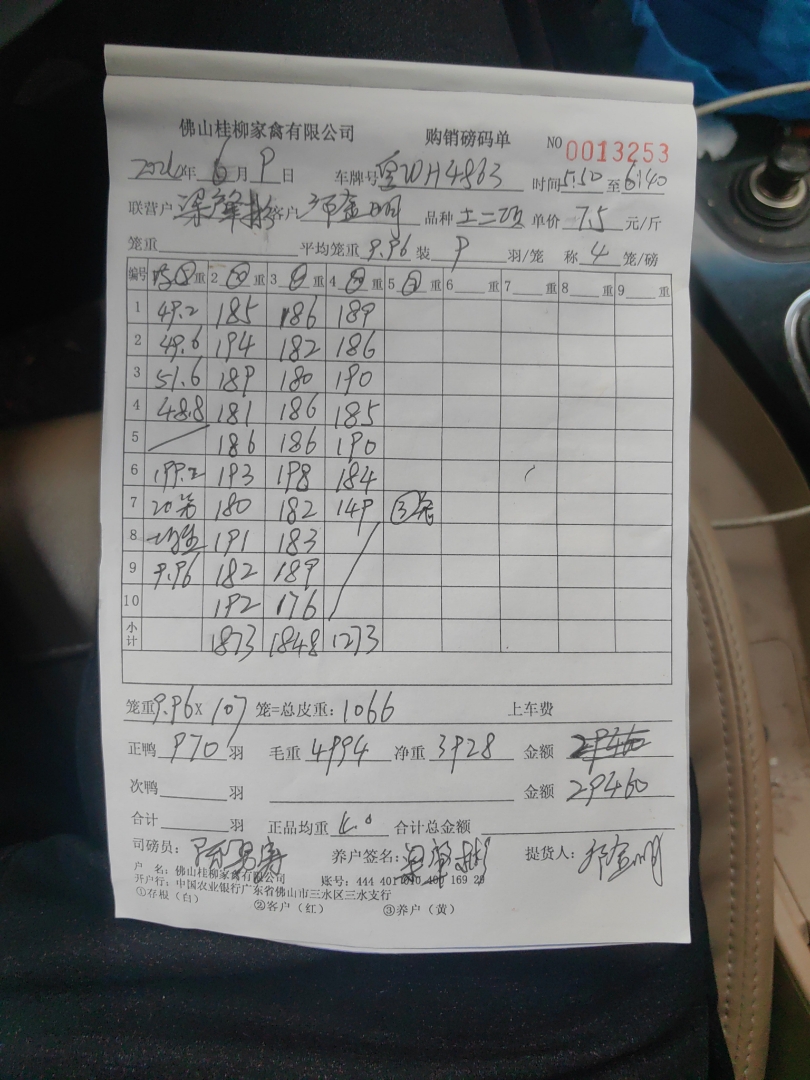 佛山桂柳家禽有限公司 购销磅码单 NO 0013253
2026年 6月 9日 车牌号 WH4863 时间5:50至6:40
联营户 客户 品种 土二 单价 7.5 元/斤
笼重 平均笼重 9.96 装 9 羽/笼 称 4 笼/磅
编号 重 2 重 3 重 4 重 5 重 6 重 7 重 8 重 9 重
1 49.2 185 186 189
2 49.6 194 182 186
3 51.6 189 180 190
4 48.8 181 186 185
5 186 186 190
6 199.2 193 198 184
7 20笼 180 182 149 ③笼
8 191 183
9 9.96 182 189
10 192 176
小计 1873 1848 1273
笼重9.96X 107 笼=总皮重:1066 上车费
正鸭 970 羽 毛重 4994 净重 3928 金额 29460
次鸭 羽 金额 29460
合计 羽 正品均重 4.0 合计总金额
司磅员: 养户签名: 提货人:
户 名:佛山桂柳家禽有限公司 账号:444 401 169 29
开户行:中国农业银行广东省佛山市三水区三水支行
①存根(白) ②客户(红) ③养户(黄)